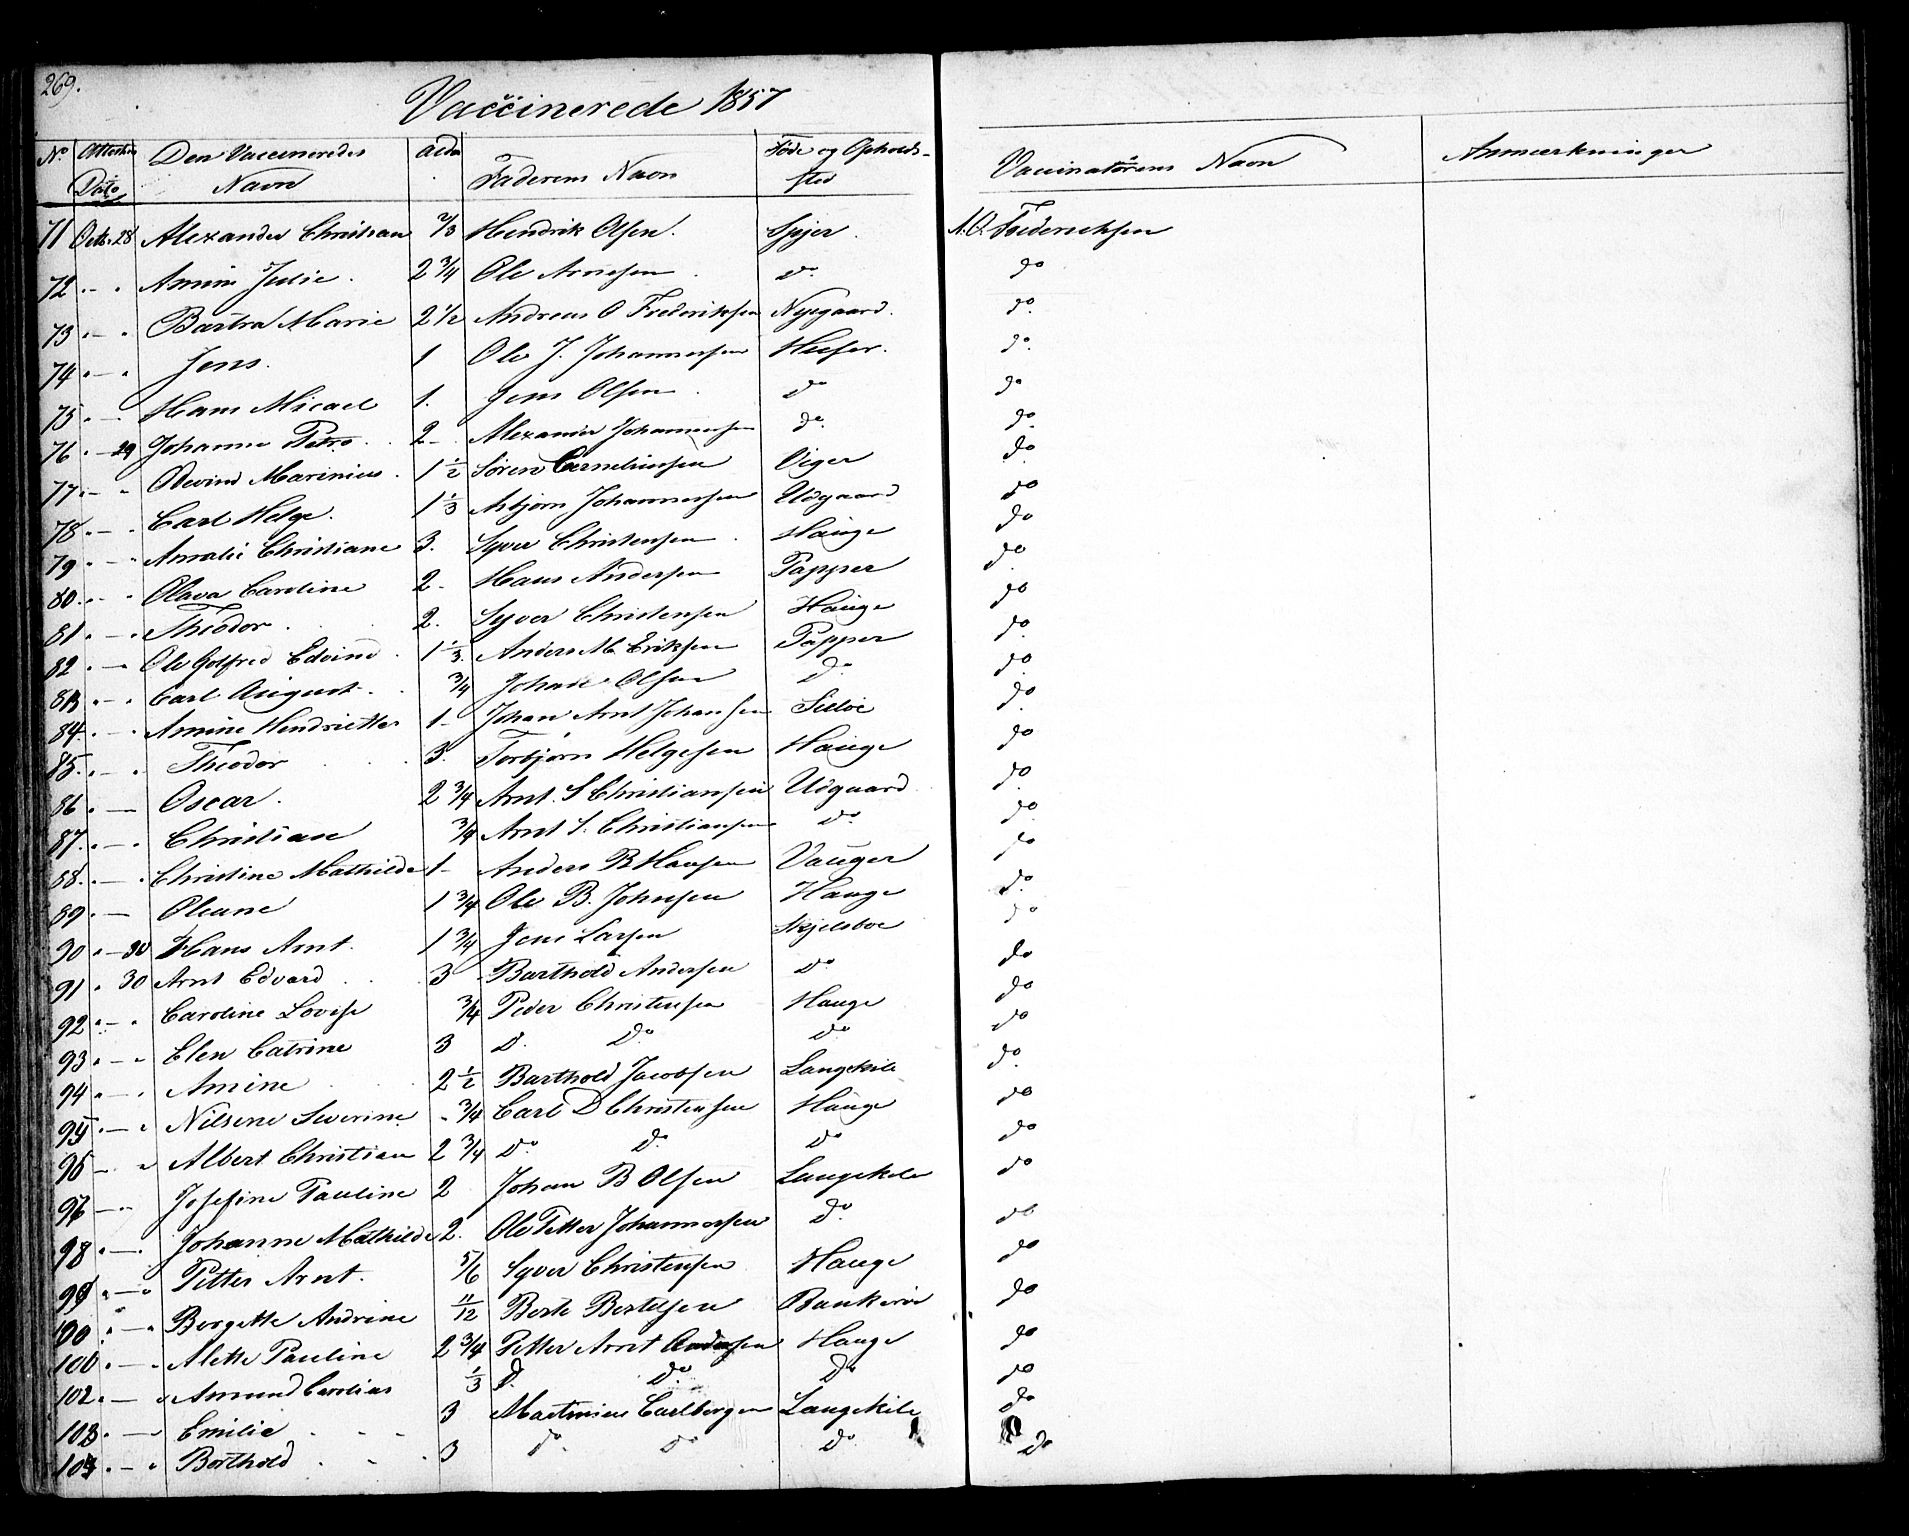 269.
Vaccinerede 1857
No Attestens Dato Den Vaccineredes Navn Alder Faderens Navn Føde og Opholdssted Vaccinatørens Navn Anmærkninger
71 Octb. 28 Alexander Christian 2/3 Hendrik Olsen. Spjer. A.O. Frederichsen
72 " - " Amine Julie. 2 3/4 Ole Arnesen do do
73 " - " Bartra Marie 2 1/2 Andreas O Frederiksen Nyegaard. do
74 " - " Jens. 1 Ole J. Johannesen Huser. do
75 " - Hans Micael 1. Jens Olsen do do
76 " - 29 Johanne Petra 2 - Alexander Johannesen do do
77 " - " Edevind Marinius. 1 1/2 Søren Corneliusen Viger do
78 " - " Carl Helge. 1 1/3 Asbjørn Johannesen Udgaard do
79 " - " Amalie Christiane 3. Syver Christensen. Hauge do
80 " - " Olava Caroline 2 - Hans Andersen Papper do
81 " - " Theodor. 2. Syver Christensen Hauge do
82 " - " Ole Gotfred Edvind. 1 1/3 Anders M. Eriksen Papper do
83 " - " Carl August. 3/4 Johan Olsen do do
84 " - " Amine Hendriette 1 - Johan Arnt Johansen do
85 " - " Theodor 3. Torbjørn Helgesen Hauge do
86 " - Oscar. 2 3/4 Arnt. S Christiansen Udgaard do
87 " - " Christian 3/4 Arnt S. Christiansen do do
88 " - " Christine Mathilde 1 - Anders B Hansen Vauger do
89 " - Oleane 1 3/4 Ole B. Johnsen Hauge do
90 " - 30 Hans Arnt. 1 3/4 Jens Larsen Skjelsboe do
91 " 30 Arnt Edvard 3 Barthold Andersen do do
92 " - " Caroline Lovise 3/4 Peder Christensen Hauge do
93 " - " Elen Catrine 3 do do do do
94 " - " Amine 2 1/2 Barthold Jacobsen Langekile do
95 " - " Nilsene Severine. - 3/4 Carl D Christensen Hauge do
96 - " Albert Christian 2 3/4 do do do do
97 - " Josefine Pauline 2 Johan B Olsen Langekile do
98 " - " Johanne Mathilde 2. Ole Petter Johannesen do do
99 " - " Petter Arnt. 5/6 Syver Christensen Hauge do
100 " - " Borgette Andrine 11/12 Bertelsen do
101 " - " Alette Pauline 2 3/4 Petter Arnt Andersen Hauge do
102 " - " Amund Carolius 1/3 do do do do
103 " - Emilie 3 Martinius Carlbergen Langekile do
104 " - " Borthold 3 do do do do